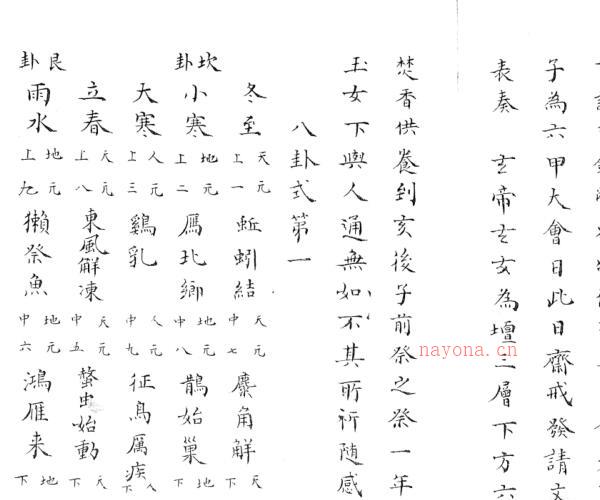 子為六甲大會日此日齋戒發請文
表奏 玄帝玄女為壇三層下方六
焚香供養到亥後子前祭之祭一年
玉女下與人通無如不其所祈随感
八卦式第一
冬至 天元上一 蚯蚓結 天元中七 麋角解 天下
坎卦 小寒 地元上二 鴈北鄉 地元中八 鵲始巢 地下
大寒 人元上三 鷄乳 人元中九 征鳥厲疾 人下
立春 天元上八 東風解凍 天元中五 蟄虫始動 天下
艮卦 雨水 地元上九 獺祭魚 地元中六 鴻雁来 地下
nayona.cn